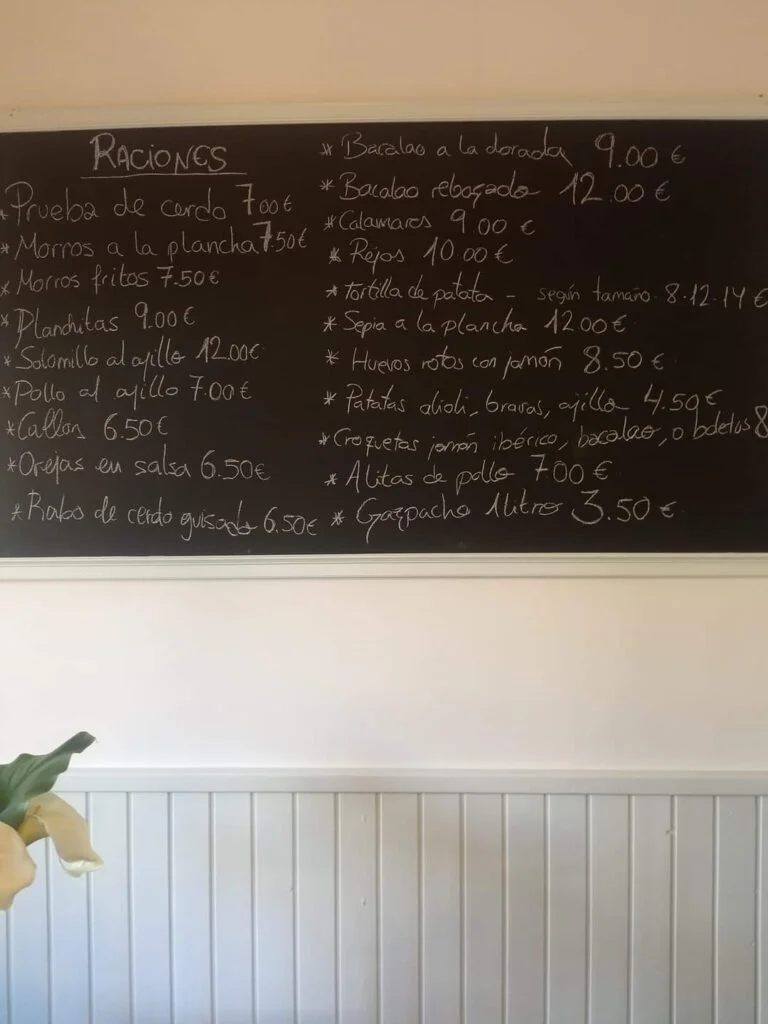 RACIONES
* Prueba de cerdo 7.00 €
* Morros a la plancha 7.50€
* Morros fritos 7.50€
* Planchitas 9.00€
* Solomillo al ajillo 12.00€
* Pollo al ajillo 7.00€
* Callos 6.50€
* Orejas en salsa 6.50€
* Rabo de cerdo guisado 6.50€
* Bacalao a la dorada 9.00 €
* Bacalao rebozado 12.00 €
* Calamares 9.00 €
* Rejos 10.00 €
* Tortilla de patata - según tamaño 8.12.14 €
* Sepia a la plancha 12.00 €
* Huevos rotos con jamón 8.50 €
* Patatas alioli, bravas, ajillo 4.50 €
* Croquetas jamón ibérico, bacalao, o boletus 8
* Alitas de pollo 7.00 €
* Gazpacho 1 litro 3.50 €